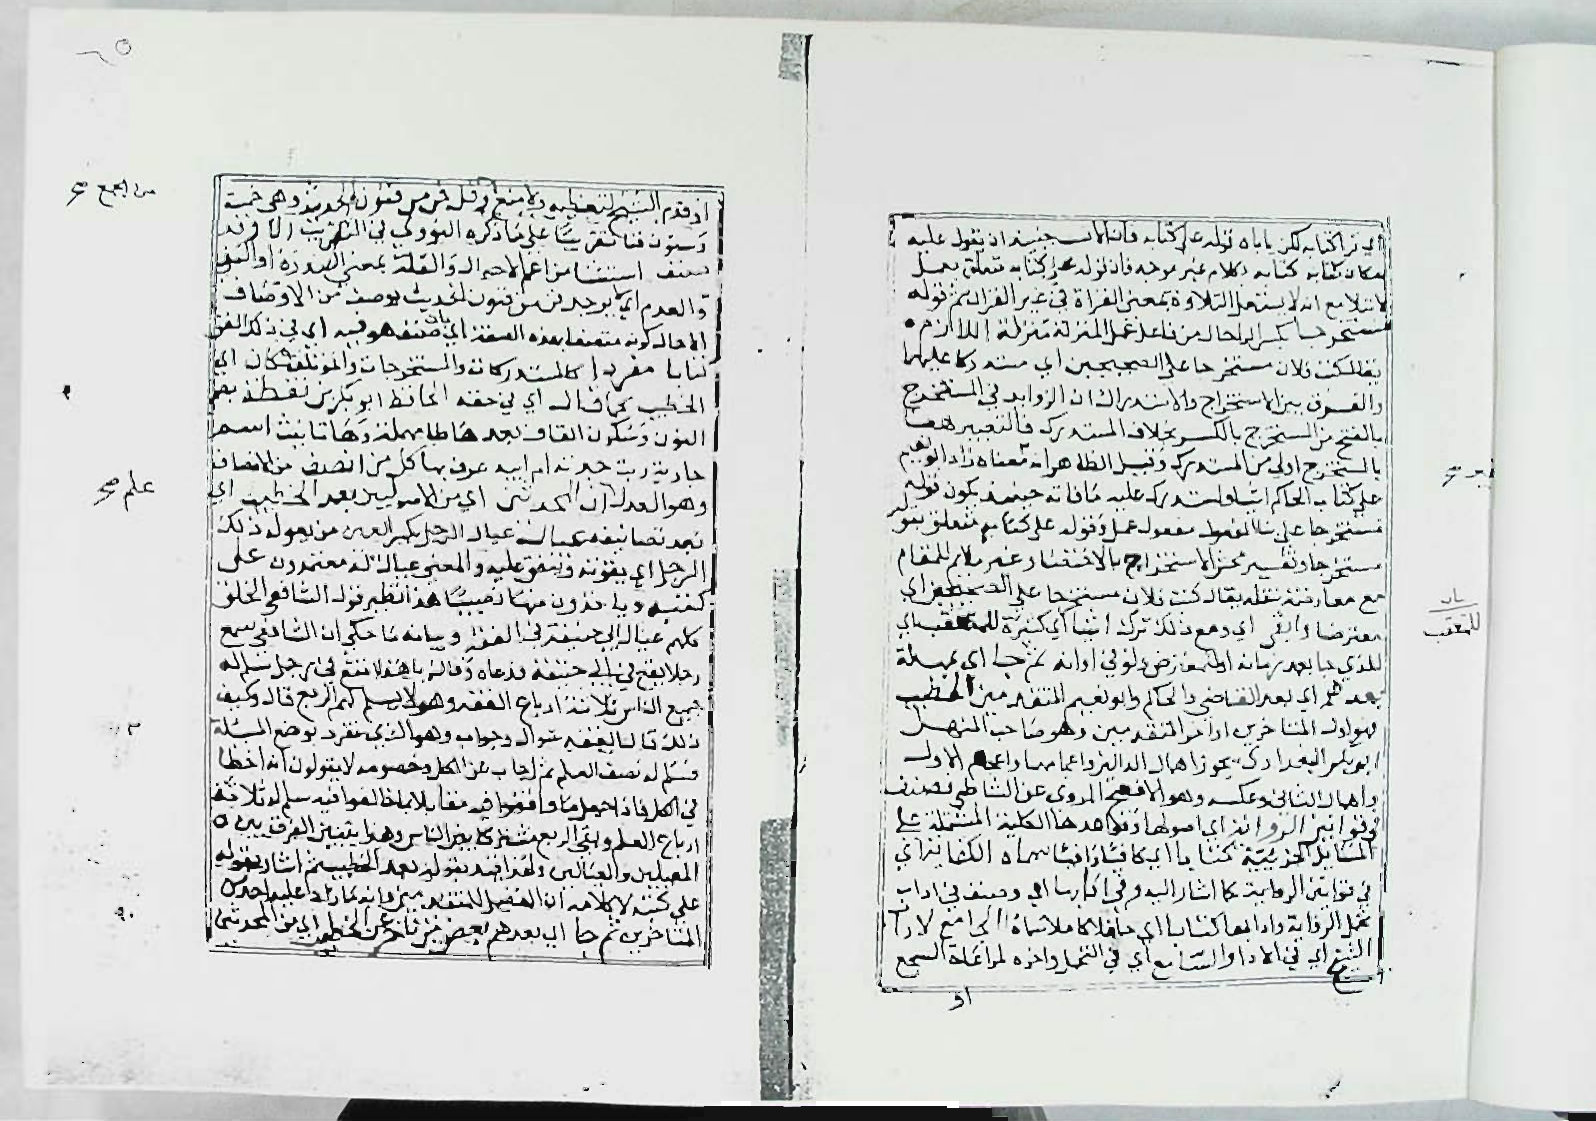 أي ترا كتابه لكن ياباه قوله على كتابه فان الانسب حينئذ ان يقول عليه
مكان كتابه كتابه وكلام غير موجه فان قوله على كتابه متعلق بعمل
لا بتلا مع انه لا يستعمل التلاوة بمعنى القراة في غير القران ثم قوله
مستخرجا بكسر الراحال من فاعل عمل المنزل منزلة اللازم
يقال كتب فلان مستخرجا على الصحيحين اي مستدركا عليهما
والفرق بين الاستخراج والاستدراك ان الزوايد في المستخرج
بالفتح من المستخرج بالكسر بخلاف المستدرك فالتعبير ههنا
بالمستخرج اولى من المستدرك وقيل الظاهر انه معناه زاد ابو نعيم
على كتاب الحاكم اشيا واستدرك عليه ما فاته حينئذ يكون قوله
مستخرجا على بنا المفعول مفعول عمل وقوله على كتابه متعلق بقوله
مستخرجا وتفسير الاستخراج بالاختصار غير ملايم للمقام
مع معارضة نقله يقال كتب فلان مستخرجا على الصحيحين اي
معترضا وابقى اي ومع ذلك ترك اشيا اي كثيرة للمتعقب اي
للذي جا بعد زمانه او لمعارض ولو في اوانه ثم جا اي بمهلة
بعدهم اي بعد القاضي والحاكم وابو نعيم المتقدمين الخطيب
فهو اول المتاخرين او اخر المتقدمين وهو صاحب المنهل
ابو بكر البغدادي يجوز اهمال الدالين واعجامهما واعجام الاول
واهمال الثاني وعكسه وهو الافصح المروى عن الشاطبي فصنف
في قوانين الرواية اي اصولها وقواعدها الكلية المشتملة على
المسايل الجزئية كتابا اي كافيا وافيا سماه الكفاية اي
في قوانين الرواية كما اشار اليه وفي ادابها اي وصنف في اداب
تحمل الرواية وادابها كتابا اي حافلا كاملا سماه الجامع لاداب
الشيخ اي في الادا والسامع اي في التحمل واخره لمراعاة السجع
او
بعد صح
للمتعقب
اذ قدم الشيخ لتعظيمه ولا منع وقل فن من فنون الحديث وهي خمسة
وستون فنا تقريبا على ما ذكره النووي في التقريب الا وقد
صنف استثنا من اعم الاحوال والقلة بمعنى الندرة او النفي
والعدم اي لا يوجد فن من فنون الحديث بوصف من الاوصاف
الا حال كونه متصفا بهذه الصفة اي بان صنف هو فيه اي في ذلك الفن
كتابا مفردا كالمستدركات والمستخرجات والموتلف فكان اي
الخطيب كما قال اي في حقه الحافظ ابو بكر بن نقطة بضم
النون وسكون القاف بعدها طا مهملة وها تانيث اسم
جارية ربت جدته ام ابيه عرف بها كل من انصف من الانصاف
وهو العدل ان المحدثين اي من الاصوليين بعد الخطيب اي
بعد تصانيفه عيال عيال الرجل بكسر العين من يعوله ذلك
الرجل اي يقوته وينفق عليه والمعنى عيال له معتمدون على
كتبه وياخذون منها نصيبا هذا نظير قول الشافعي الخلق
كلهم عيال ابي حنيفة في الفقه وبيانه ما حكي ان الشافعي سمع
رجلا يقع في ابي حنيفة فدعاه وقال يا هذا اتقع في رجل سلم له
جميع الناس ثلاثة ارباع الفقه وهو لا يسلم لهم الربع قال وكيف
ذلك قال الفقه سوال وجواب وهو الذي تفرد بوضع المسئلة
فسلم له نصف العلم ثم اجاب عن الكل وخصومه لا يقولون انه اخطا
في الكل فاذا جعل ما وافقوا فيه مقابلا بما خالفوا فيه سلم له ثلاثة
ارباع العلم وبقي الربع مشتركا بين الناس وهذا يتبين الفرق بين
المصيلين والعيالين ولهذا قيد بقوله بعد الخطيب ثم اشار بقوله
على كتبه لا كلامه ان الفضل للمتقدمين وانه ما زاد عليه احد
المتاخرين ثم جا اي بعدهم بعض من تاخر عن الخطيب اي من المحدثين
من الجمع صح
علم صح